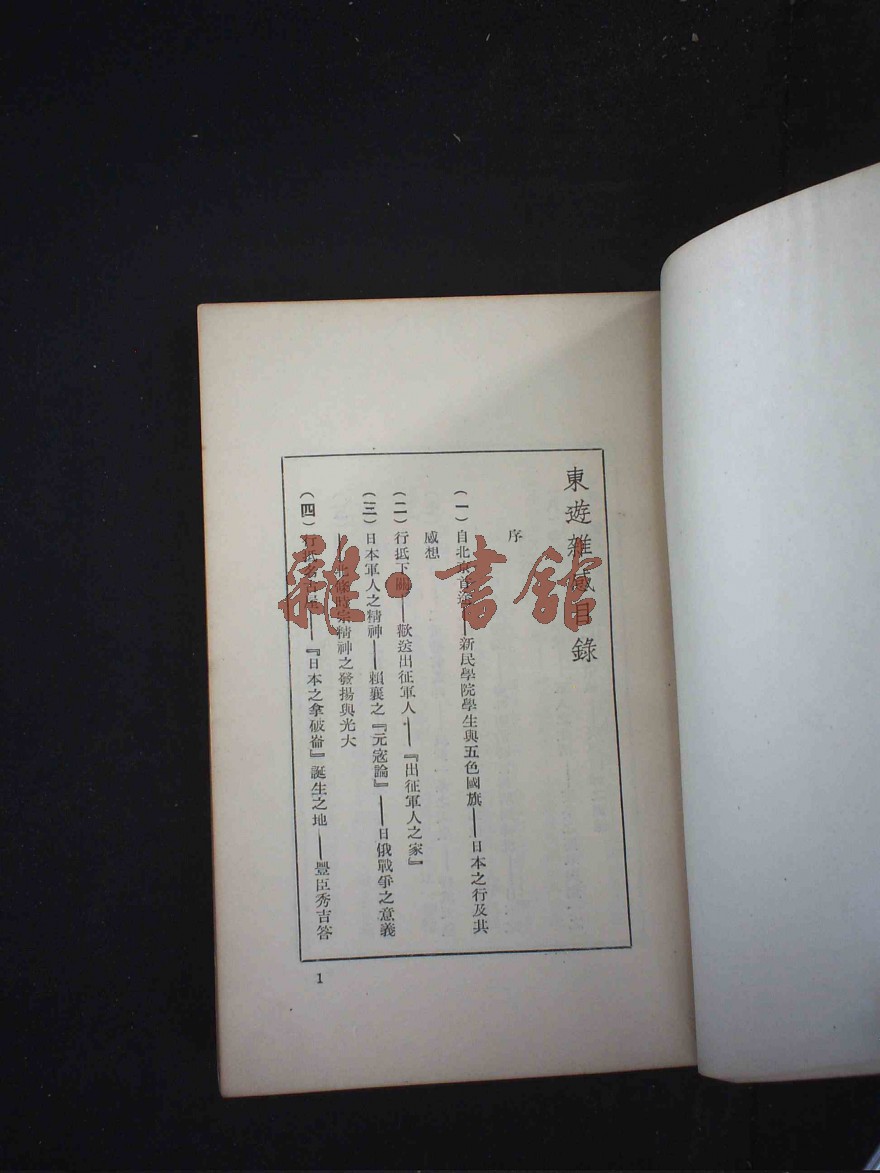 東遊雜感目錄
序
(一)自北京首途——新民學院學生與五色國旗——日本之行及其
感想
(二)行抵下關——歡送出征軍人——『出征軍人之家』
(三)日本軍人之精神——賴襄之『元寇論』——日俄戰爭之意義
——北條時宗精神之發揚與光大
(四)行抵名古屋——『日本之拿破崙』誕生之地——豐臣秀吉答
1
雜·書館